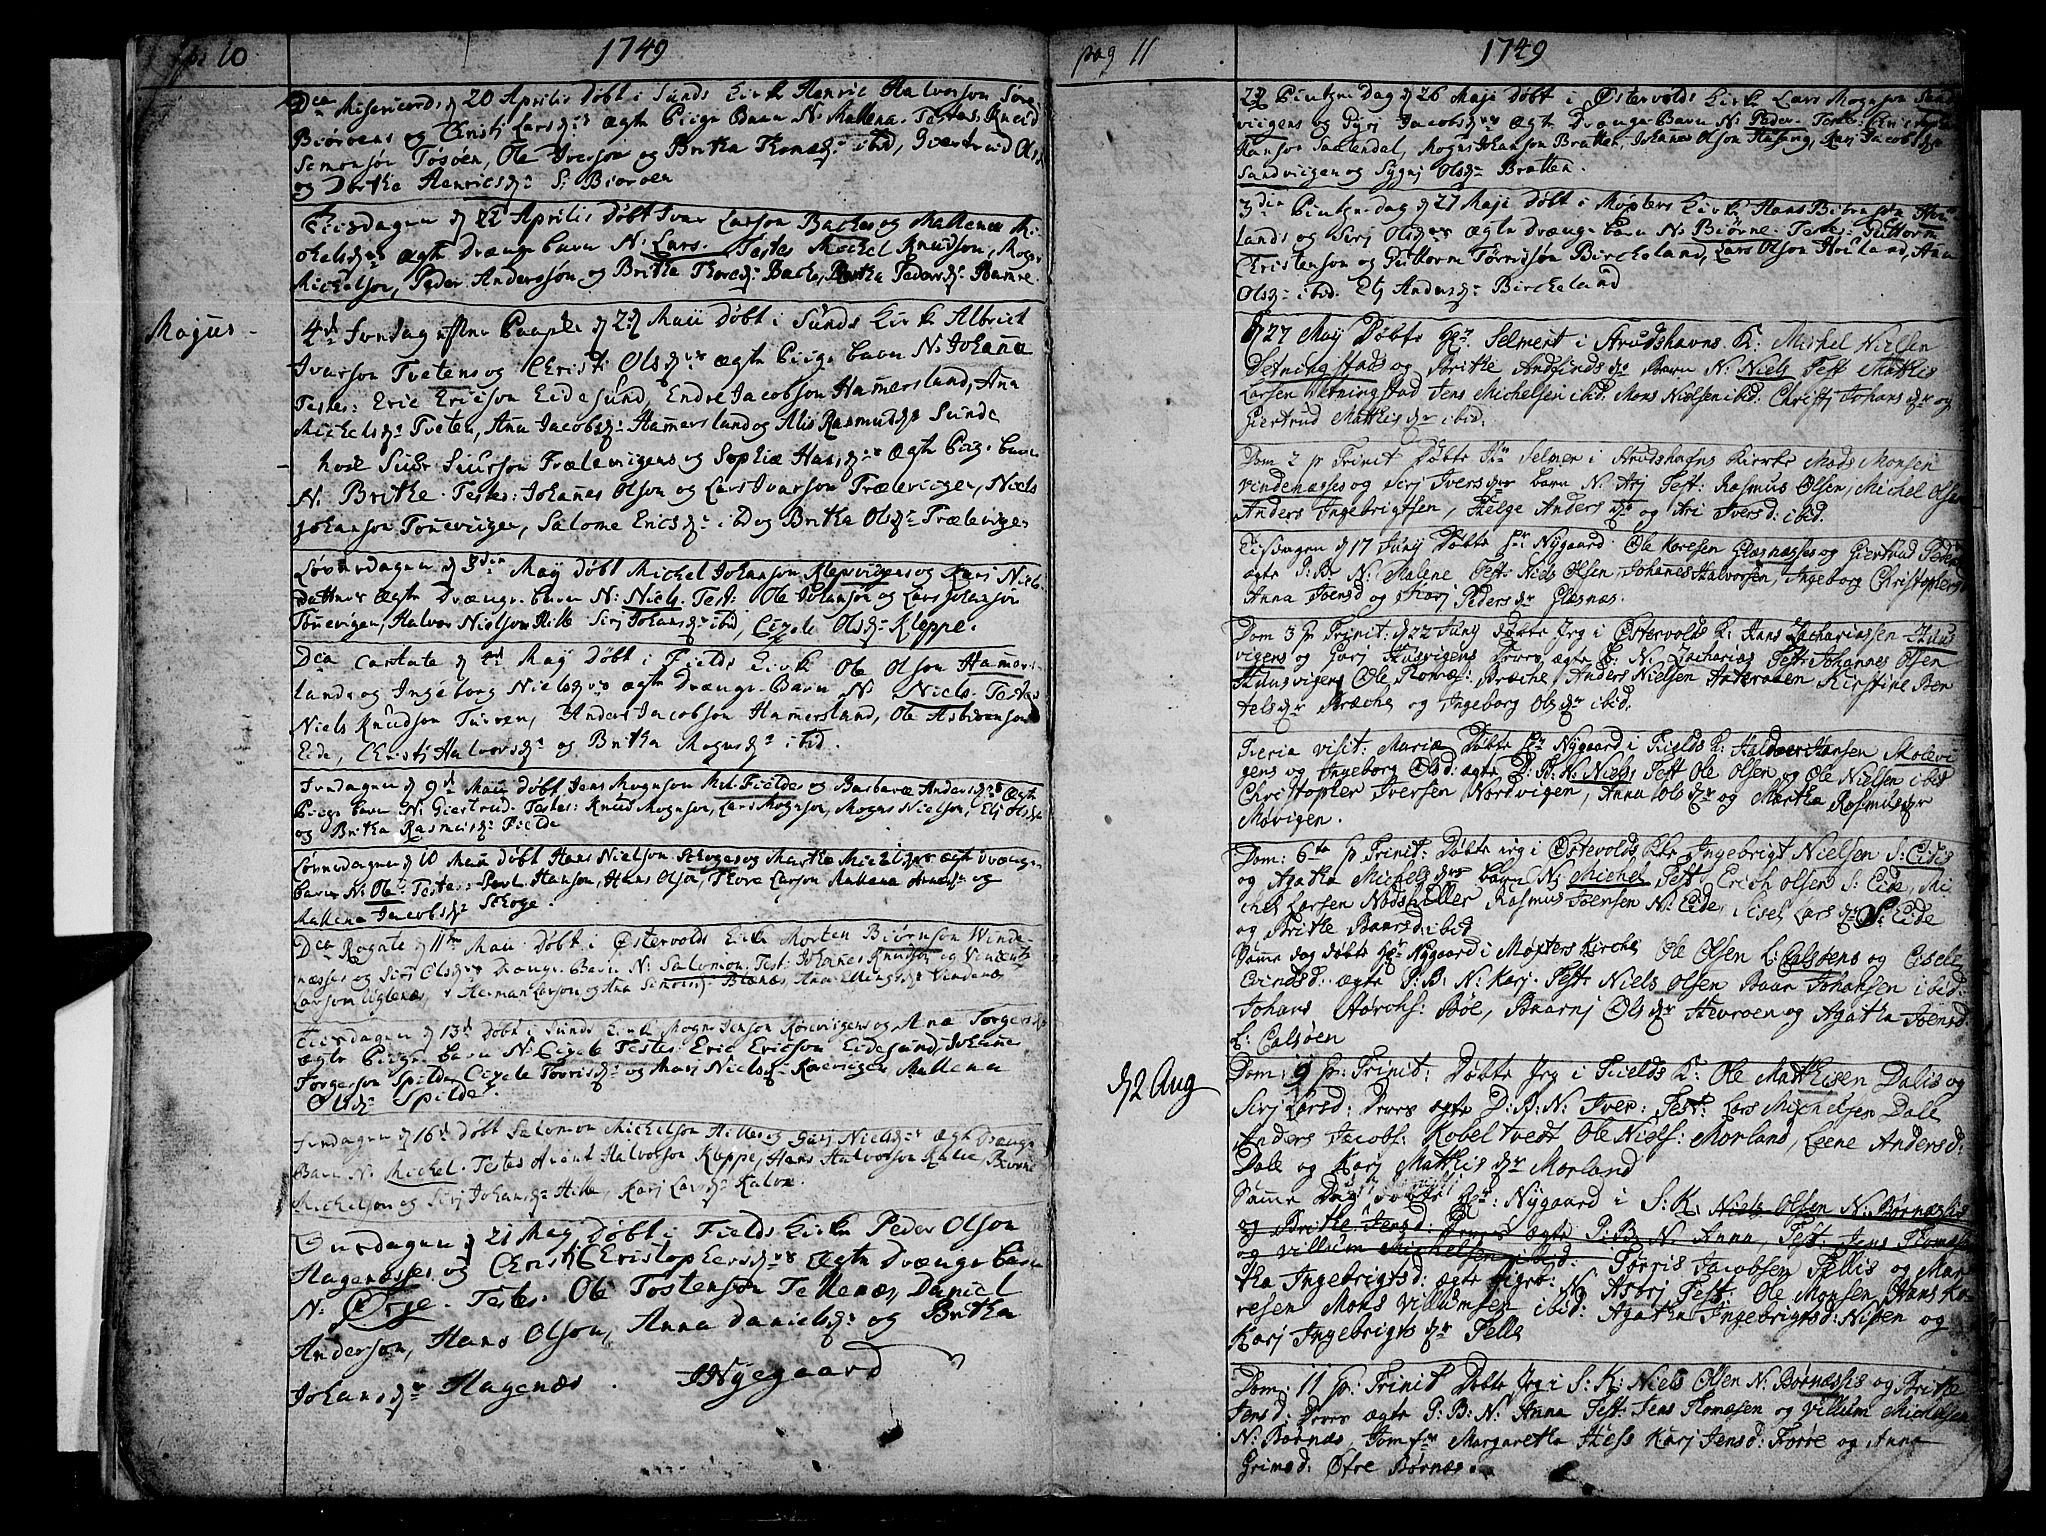 pag 10
1749
Dca Misericords d 20 Aprilis døbt i Sunds Kirke Henric Halvorson Søre
Biøroens og Christj Larsdrs ægte Piige Barn N: Mallena. Testes: Knud
Simonsøn Tøsøen, Ole Iverson og Britha Thomædr ibid, Giertrud Olsdr
og Dortha Henricsdr S: Biøroen
Tiisdagen d 22 Aprilis døbt Ivar Larson Backes og Mallena Mi-
chelsdrs ægte Drænge barn N: Lars. Testes Michel Knudson, Mogns
Michelson, Peder Anderssøn og Britha Thoresdr Backe, Britha Pedersdr
Magnus
4de Søndag efter Paaske d Maii døbt i Sunds Kirke Albrict
Ivarson Tvetens og Christi Olsdrs ægte Piige barn N: Johanna
Testes: Eric Ericson Eidesund, Endre Jacobson Hamersland, Ana
Michelsdr Tveten, Ana Jacobsdr Hamersland og Alis Rasmusdr Sunde
Siur Siurson Trælevigens og Sophia Hansdrs ægte Pig. barn
N. Britha. Testes: Johannes Olson og Lars Ivarson Trælevigen, Niels
Johanson Tonevigen, Salome Ericsdr ibid og Britha Olsdr Trælevigen
Løverdagen d 3die Maij døbt Michel Johanson Klepsvigens og Karj Niels-
datters ægte Drænge barn N: Niels. Test: Ole Johanson og Lars Johanson
Tonevigen, Halvor Nielson Hille Sirj Johansdr ibid, Cicele Olsdr Kleppe.
Dca Cantate d Maij døbt i Fields Kirke Ole Olson Hamers-
lands og Ingeborg Nielsdrs ægte Drænge Barn N: Niels. Testes
Niels Knudson Turven, Anders Jacobson Hamersland, Ole Asbiørnson
Eide, Christj Halvorsdr og Britha Mognsdr ibid.
Fredagen d 9de Maii døbt Jens Mognson Mel. Fieldes og Barbara Andersdrs ægte
Piege barn N. Giertrud. Testes: Knud Mognson, Lars Mognson, Mogns Nielson, Elj Olsdr
og Britha Rasmusdr Fielde
Lønerdagen d 10 Maii døbt Hans Nielson Skoges og Martha Michelsdrs ægte Drænge
barn N: Ole. Testes: Povl Hanson, Hans Olson, Thore Larson Mallena Arnesdr og
Mallena Jacobsdr Skoge.
Dca Rogate d 11te Maii døbt i Østervolds Kirke Morten Biørnson Winde-
næsses og Sirj Olsdrs Drænge Barn N: Salomon. Test: Johannes Knudson og Vincents
Larson Uglenæs, Herman Larson og Ana Simonsdr Bænæs Ana Ellingsdr Vindenæs
Tiisdagen d 13de døbt i Sunds Kirke Mogns Jenson Rørevigens og Ana Torgersdrs
ægte Piige barn N: Cicele Testes: Eric Ericson Eidesund, Johannes
Torgerson Spilde, Cicele Torrisdr og Mari Nielsdr Rørevigen Mallena
Olsdr Spilde.
Fredagen d 16de døbt Salomon Michelson Hilles og Gurj Nielsdrs ægte Drænge
Barn N: Michel. Testes Halvorson Kleppe, Hans Halvorson Kalve Biørne
Michelson og Sirj Johansdr Hille, Karj Larsdr Kalve.
Onsdagen d 21 Maij døbt i Fields Kirke Peder Olson
Hagenæsses og Christj Christophersdrs ægte Drænge barn
N: Ørje. Testes: Ole Tostenson Tellenæs, Daniel
Anderson, Hans Olson, Anna Danielsdr og Britha
Johansdr Hagenæs. JNyegaard
pag 11
1749
2d Pintse Dag d 26 Maji døbt i Østervolds Kirke Lars Mognson Sand-
viigens og Gyrj Jacobsdrs ægte Drænge Barn N: Peder. Testes: Eric
Hanson Saltendal, Mogns Johanson Bratten, Johannes Olson Husing, Karj Jacobsdr
Sandviigen og Sygni Olsdr Bratten.
3die Pintse dag d 27 Maji døbt i Møxters Kirke Hans Biørnson Høi-
lands og Sirj Olsdrs ægte Drænge barn N: Biørne. Testes: Guttorm
Christenson og Guttorm Tørrisøn Birckeland, Lars Olson Hoiland, Anna
Olsdr ibid. Elj Andersdr Birckeland
d 27 Maij Døbte Hr. Selmer i Strudshavns K: Michel Nielsen
Detningstads og Britha Andfindsdr Barn N: Niels Test Mathis
Larsen Detningstad Jens Michelsen ibid: Mons Nielsen ibid: Christj Johansdr og
Giertrud Mathisdr ibid:
Dom 2 p Trinit Døbte Hr Selmer i Strudshafns Kierke Mads Monsen
Vindenæsses og Sirj Iversdr barn N. Arj Test: Rasmus Olsen, Michel Olsen
Anders Ingebrigtsen, Helge Andersdr og Ari Iversd: ibid.
Tisdagen d 17 Junij Døbte Hr Nygaard Ole Korsen Glesnæsses og Giertrud Peders
ægte P: B: N: Malene Test: Niels Olsen, Johanes Halvorsen, Ingeborg Christophersd
Anna Ivensd og Karj Pedersdr Glesnæs.
Dom 3 p Trinit: d 22 Junij Døbte Jeg i Østervolds K: Hans Zachariassen Huus
vigens og Gurj Husvigens Deres ægte B: N: Zacharias Test: Johannes Olsen
Huusvigen Ole Thomæs: Bræche, Anders Nielsen Hateroen Kirstine Ben
telsdr Bræche og Ingeborg Olsdr ibid.
Feria visit: Mariæ Døbte Hr Nygaard i Fields K: Haldoer Hansen Molevi
gens og Ingeborg Olsd: ægte D: B: N: Niels Test Ole Olsen og Ole Nielsen ibid
Christopher Iversen Nordvigen, Anna Olsdr og Martha Rasmusdr
Movigen.
Dom: 6te p Trinit: Døbte ieg i Østevolds Kke Ingebrigt Nielsen S: Eides
og Agatha Michelsdrs barn N: Michel Test Erich Olsen S: Eide, Mi
chel Larsen Nodskiller Rasmus Ivensen N: Eide, Sisel Larsdr N: Eide
og Britha Baarsd: ibid
Samme dag døbte Hr Nygaard i Møxters Kirche Ole Olsen L: Calsøens og Cisele
Evindsd: ægte P: B: N: Karj. Test Niels Olsen Baar Johansen ibid:
Johans Bøe, Baarnj Olsdr Hevroen og Agatha Ivensd:
L: Calsøen
d 2 Aug
Dom: 9 p: Trinit: Døbte Jeg i Fields K: Ole Mathisen Dalis og
Sirj Larsd: Deres ægte D: B: N: Iver: Test: Lars Michelsen Dale
Anders Jacobs: Kobeltvedt Ole Niels: Morland, Leene Andersd:
Dale og Karj Mathisdr Morland
Samme Dag døbte Hr: Nygaard i S: K: Niels Olsen N: Børnæsses
og Britha Jensd: Deres ægte P: B: N: Anna, Test: Jens Thomæsen
og Villum Michelsen ibid: Torris Jacobsen Fellis og Mar
tha Ingebrigtsd: ægte Pigeb: N Asbrj Test: Ole Monsen, Hans Ko
resen Mons Villumsen ibid: Agatha Ingebrigtsd: Nipen og
Karj Ingebrigtsdr Felle
Dom: 11 p: Trinit Døbte Jeg i S: K: Niels Olsen N: Børnæsses og Britha
Jensd: Deres ægte P: B: N: Anna Test: Jens Thomæsen og Villum Michelsen
N: Børnæs, Jomfr Margaretha Hess Karj Jensd: Forre og Anna
Grimsd: Øfre Børnæs.